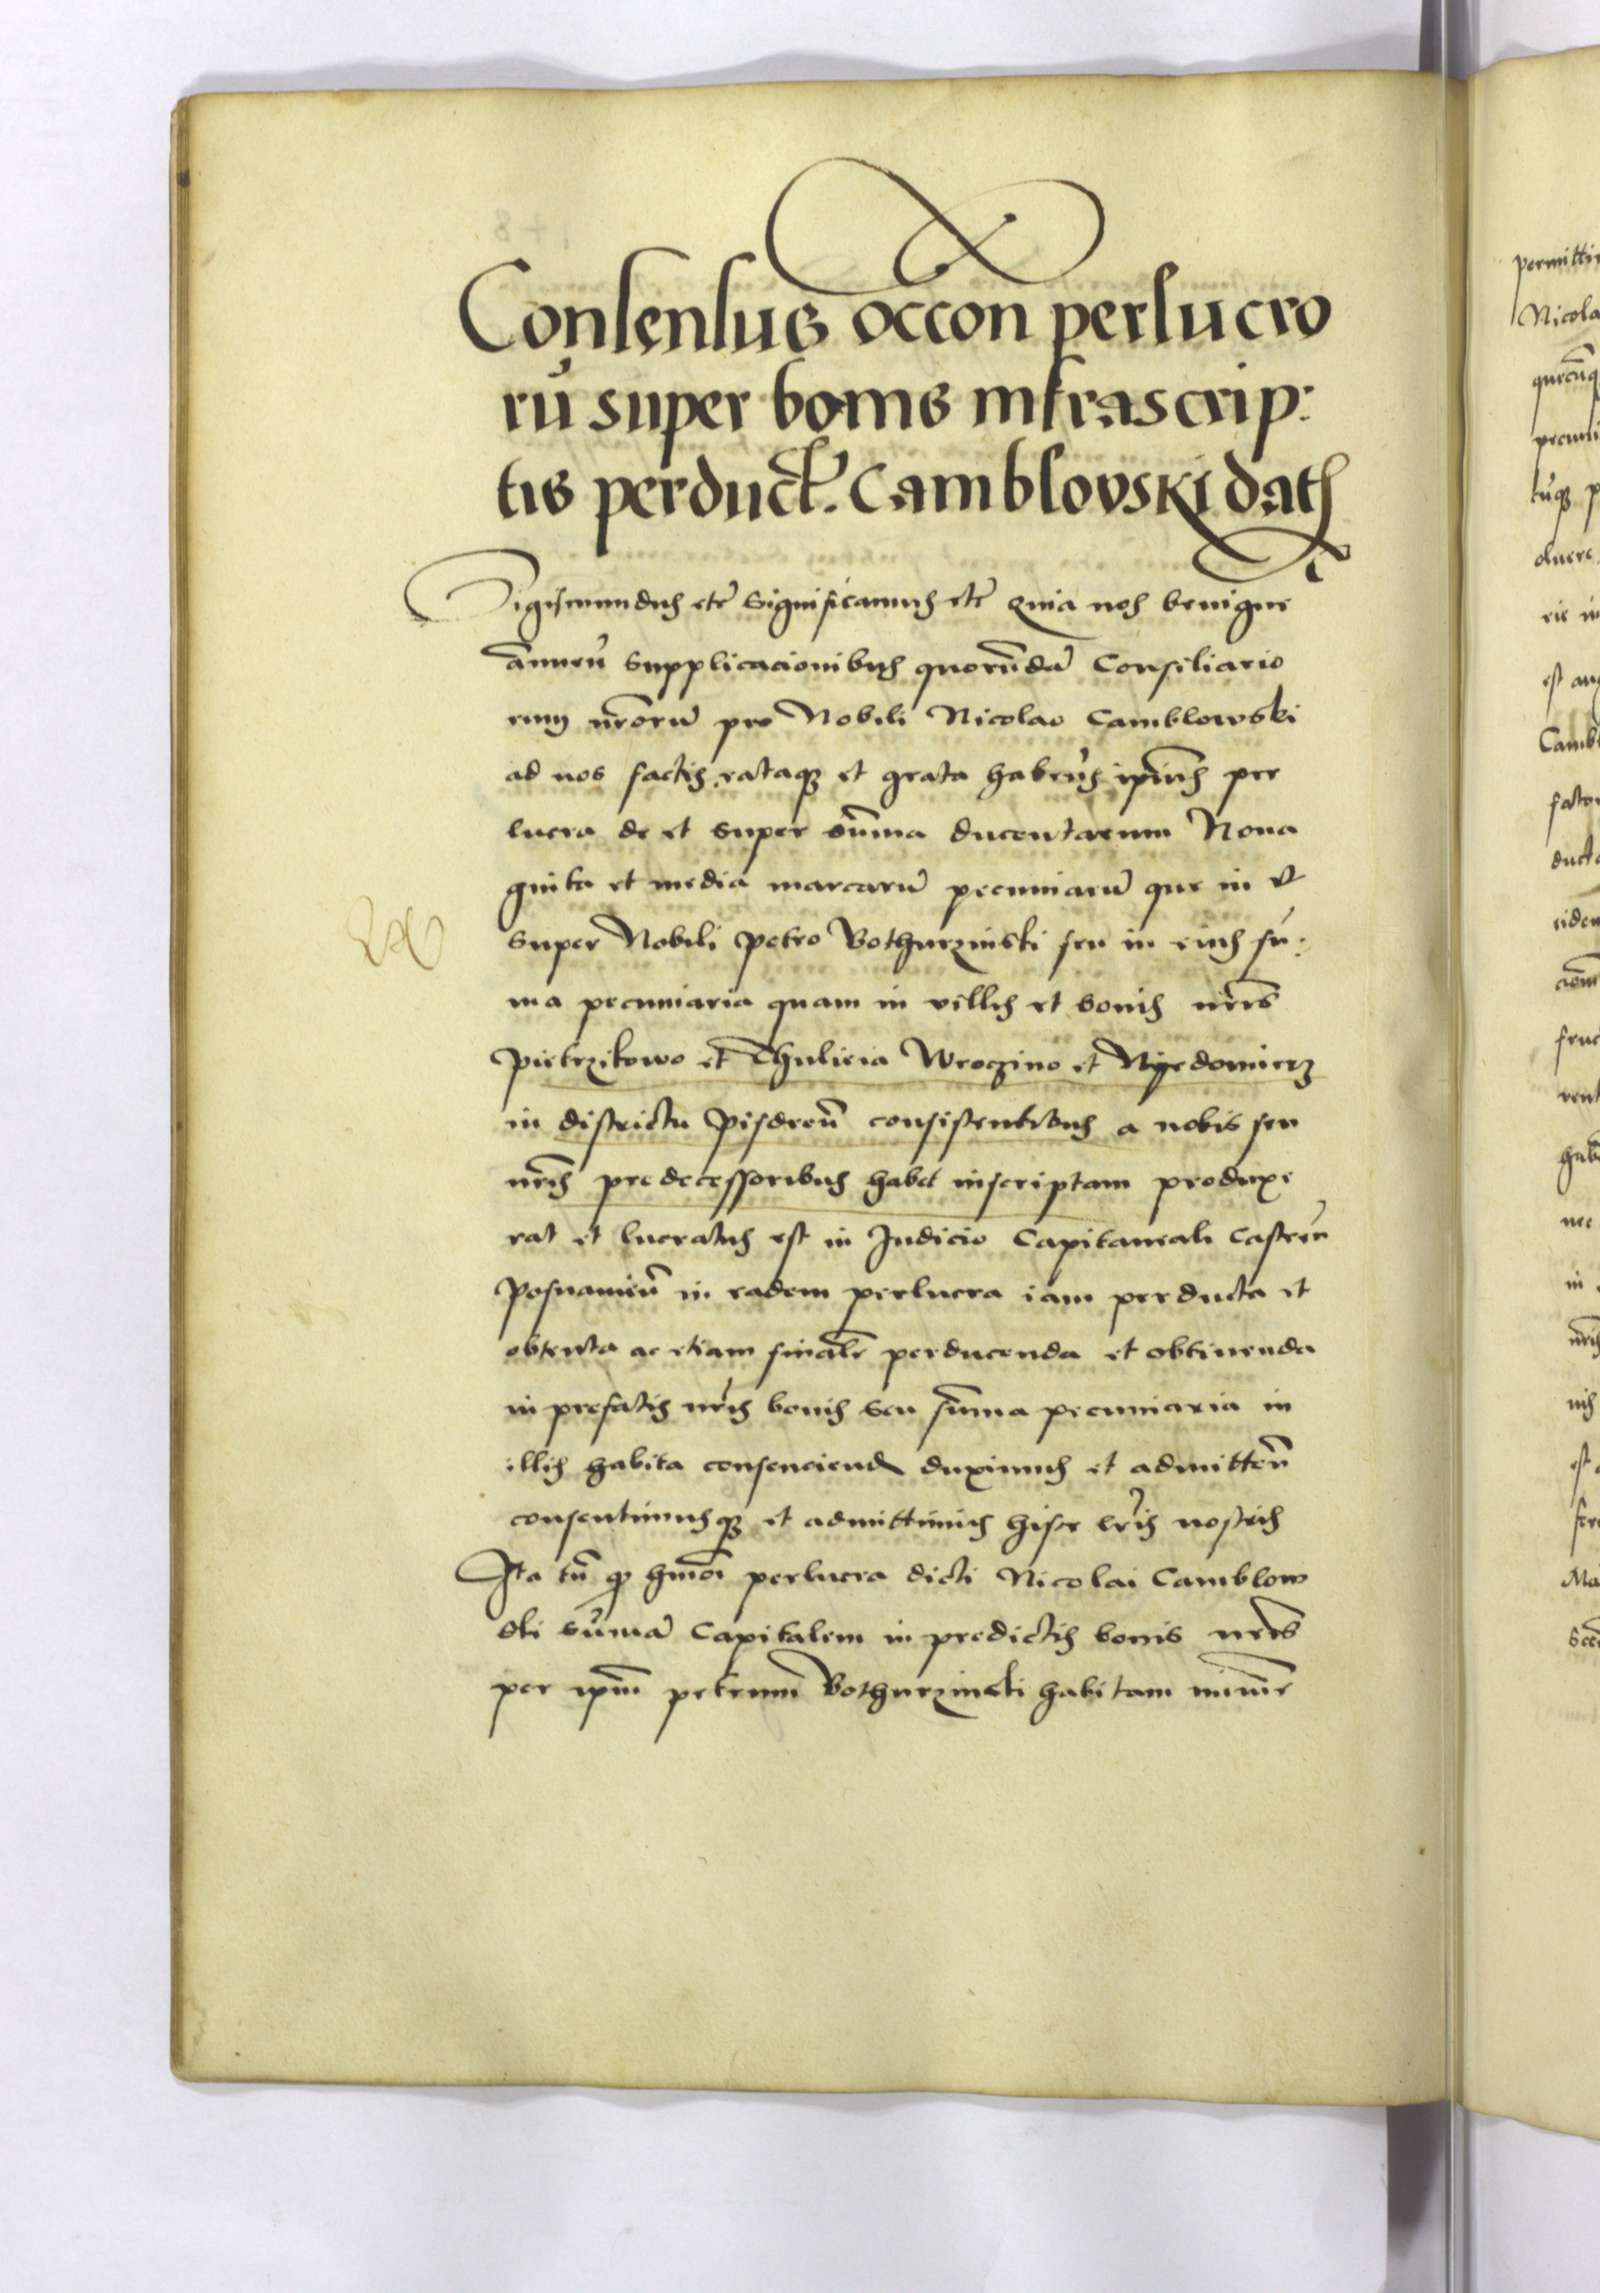 Consensus occon perlucro
rū super bonis infrascrip:
tis perduct. Camblovski dat
Sigismundus etc̄ Significamus etc̄ Quia nos benigne
añuen̄ Supplicacionibus quorūdā Consiliario
rum nr̄orū pro Nobili Nicolao Camblowski
ad nos factis rataq et grata haben̄s ip̄ius per
lucra de et super sūma ducentarum Nona
ginta et media marcarū pecuniarū que in et
super Nobili Petro Bothurzinski seu in eius sū:
ma pecuniaria quam in villis et bonis nr̄is
Pietrzikowo et Chulicia Wroczino et Nyedomierz
in districtu Pisdren̄ consistentibus a nobis seu
nr̄is predecessoribus habet inscriptam produxe
rat et lucratus est in Judicio Capitaneali Castren̄
Posnanien̄ in eadem perlucra iam perducta et
obtenta ac etiam finalr̄ perducenda et obtinenda
in prefatis nr̄is bonis seu sūma pecuniaria in
illis habita consenciend duximus et admitten̄
consentimusq et admittimus hisce lr̄is nostris
Ita tn̄ q hm̄oi perlucra dicti Nicolai Camblow
ski sūmā Capitalem in predictis bonis nr̄is
per ip̄m petrum Bothurzinski habitam minime